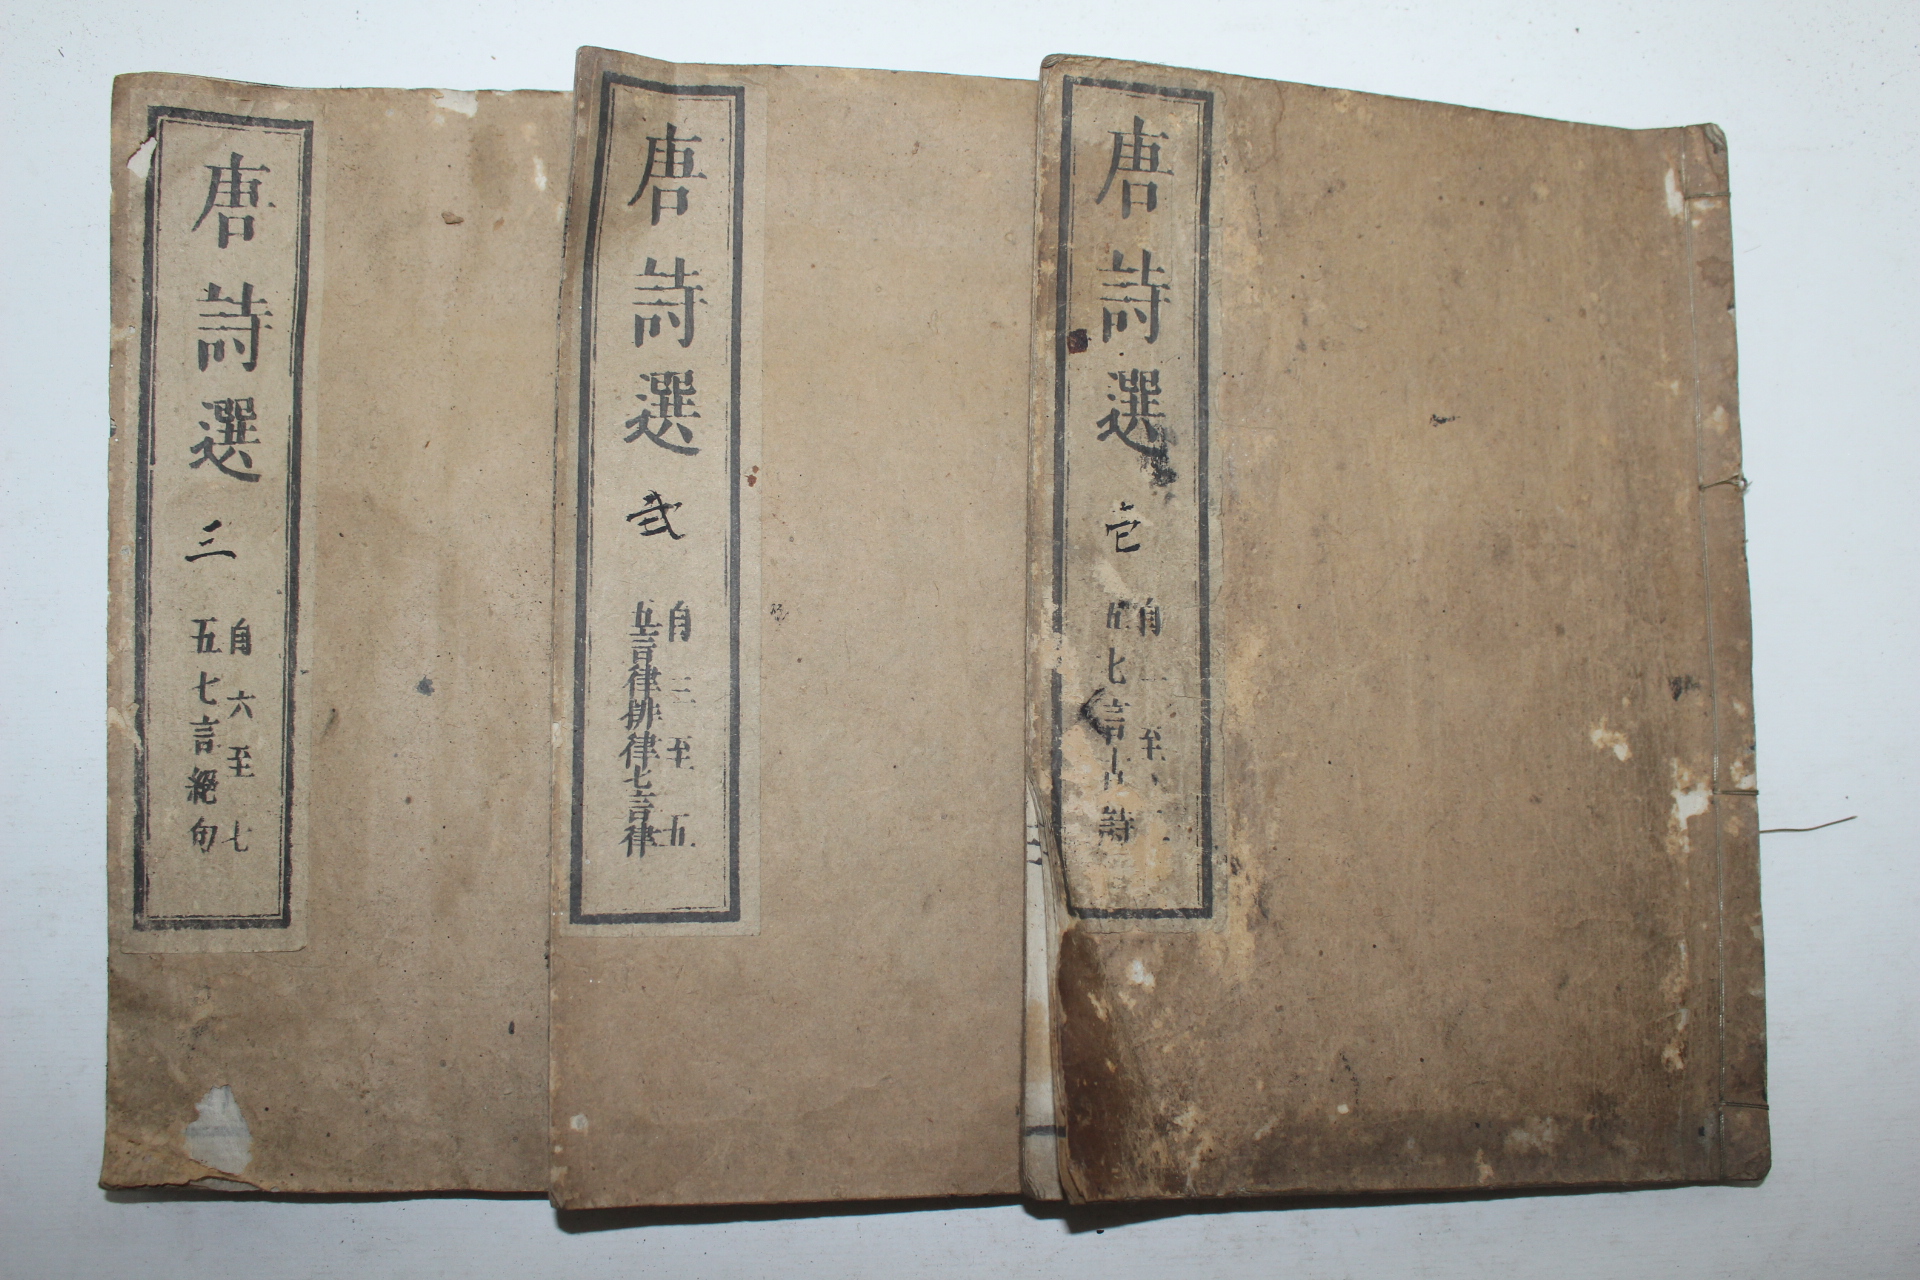 唐詩選
壱
自一至二
五七言古詩
唐詩選
弐
自三至五
五言律排律七言律
唐詩選
三
自六至七
五七言絕句